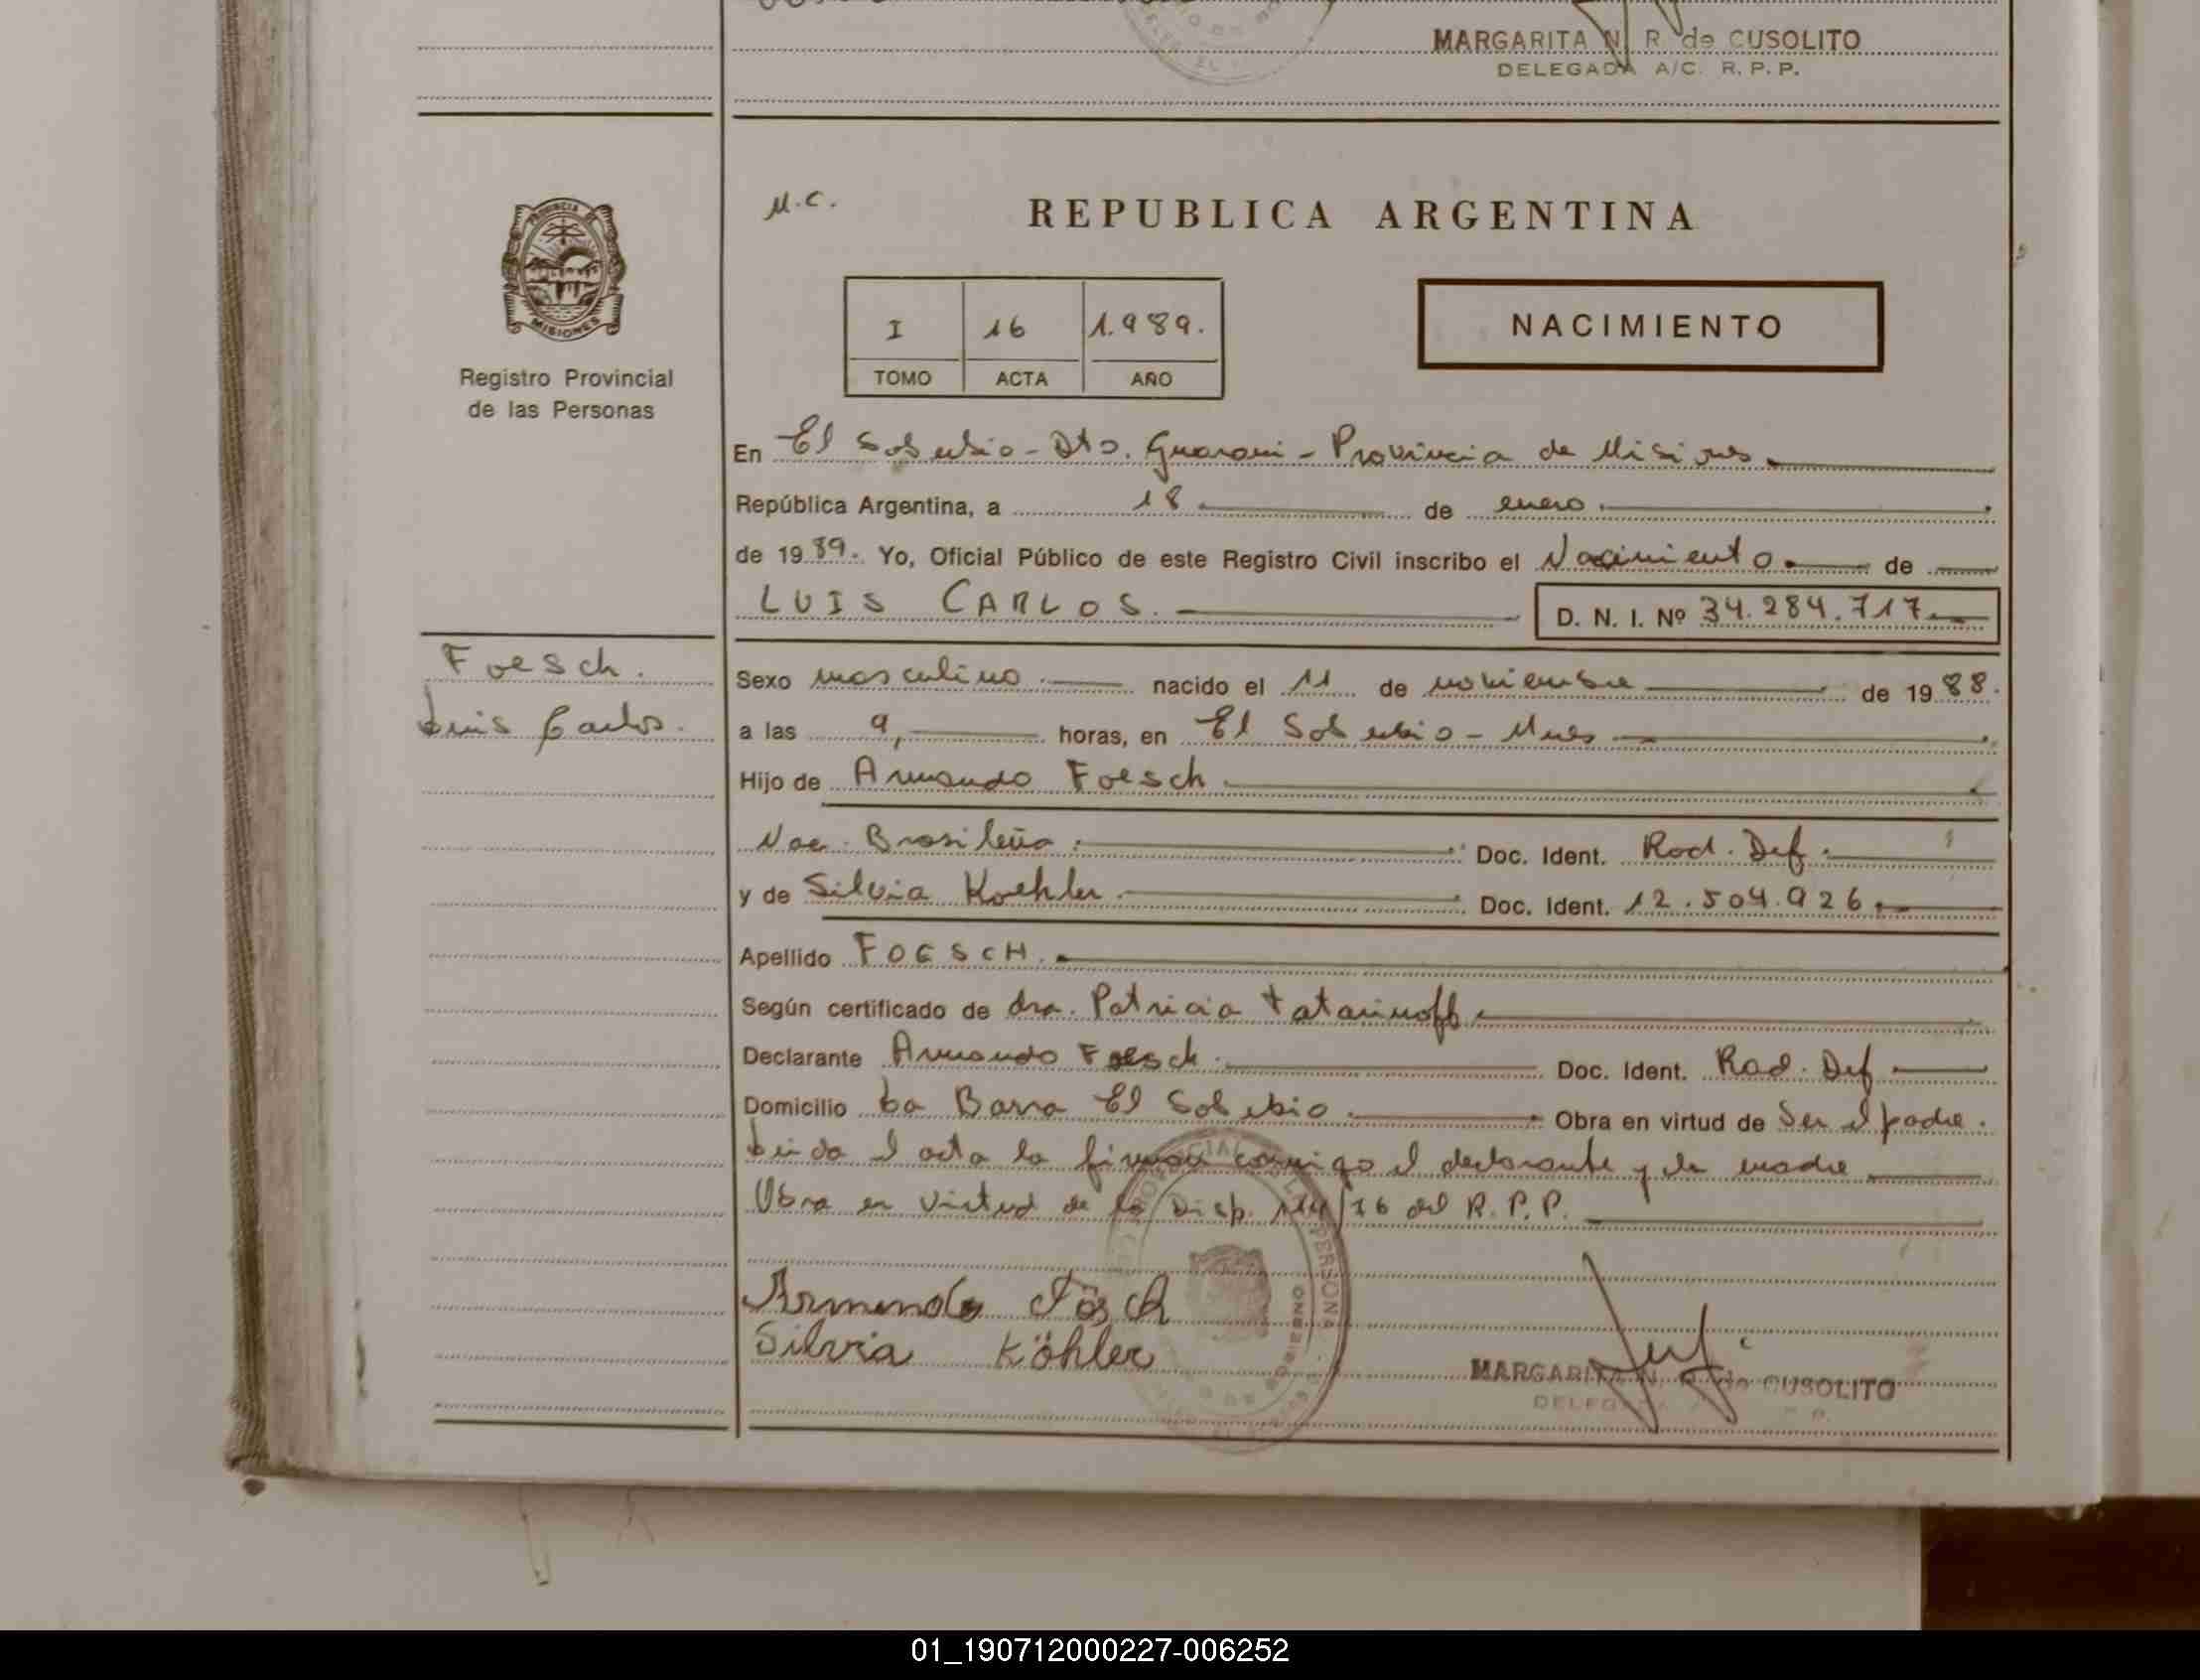 MARGARITA N. R. de CUSOLITO
DELEGADA A/C. R. P. P.
PROVINCIA DE
MISIONES
Registro Provincial
de las Personas
M.C.
REPUBLICA ARGENTINA
I 16 1.989.
TOMO ACTA AÑO
NACIMIENTO
En El Soberbio - Dto. Guarani - Provincia de Misiones
República Argentina, a 18 de enero
de 1989. Yo, Oficial Público de este Registro Civil inscribo el Nacimiento de
LUIS CARLOS. D. N. I. Nº 34.284.717
Foesch.
Luis Carlos.
Sexo masculino nacido el 11 de noviembre de 1988.
a las 9, horas, en El Soberbio - Mnes
Hijo de Armando Foesch
Nac. Brasileña. Doc. Ident. Rad. Def.
y de Silvia Koehler Doc. Ident. 12.504.926
Apellido FOESCH.
Según certificado de dra. Patricia Tatarinoff
Declarante Armando Foesch. Doc. Ident. Rad. Def
Domicilio La Barra El Soberbio. Obra en virtud de Ser el padre.
Leida el acta la firman conmigo el declarante y la madre
Obra en virtud de la Disp. /76 del R. P. P.
Armando Fösch
Silvia Köhler
MARGARITA N. R. de CUSOLITO
DELEGADA
01_190712000227-006252